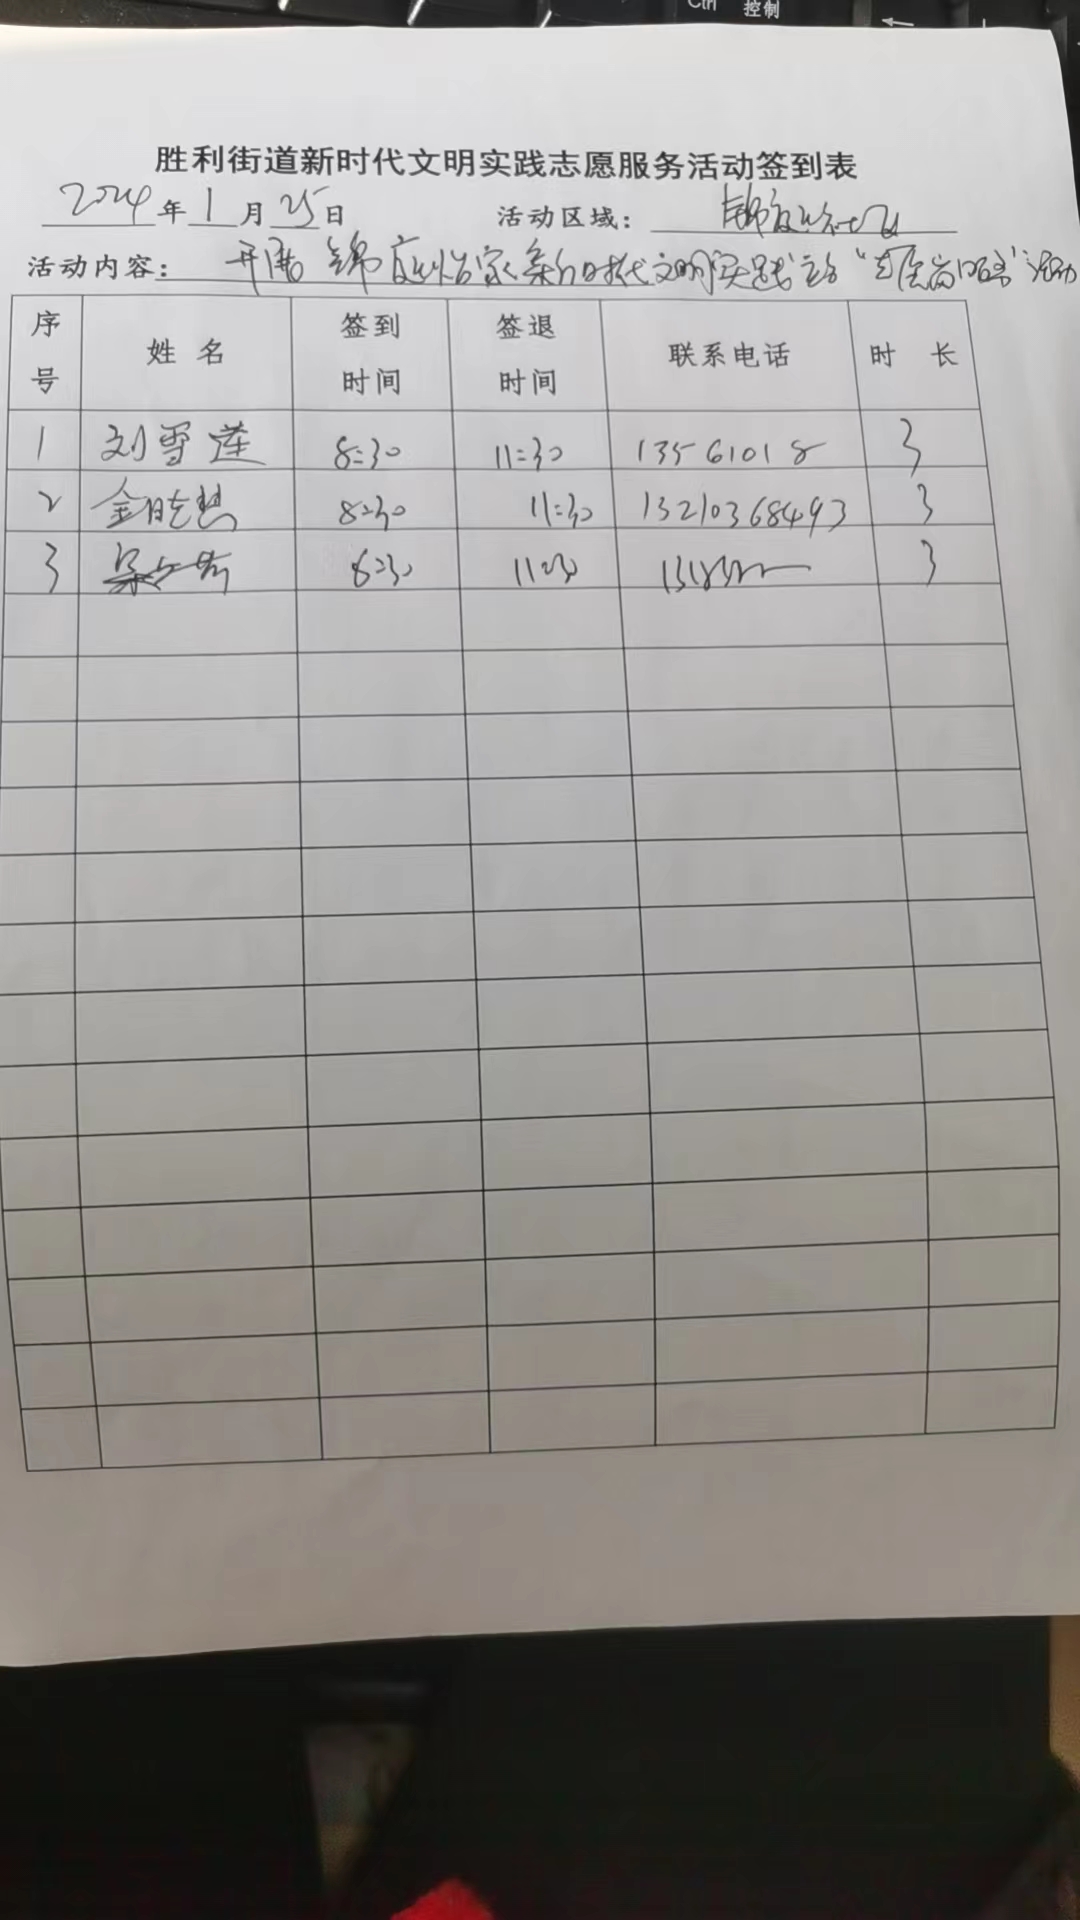 Ctrl 控制
胜利街道新时代文明实践志愿服务活动签到表
2024年1月25日 活动区域:
活动内容: 开展锦庭怡家新时代文明实践站 活动
序号 姓名 签到时间 签退时间 联系电话 时长
1 刘雪莲 8:30 11:30 13561018 3
2 金晓慧 8:30 11:30 13210368493 3
3 8:30 11:30 3